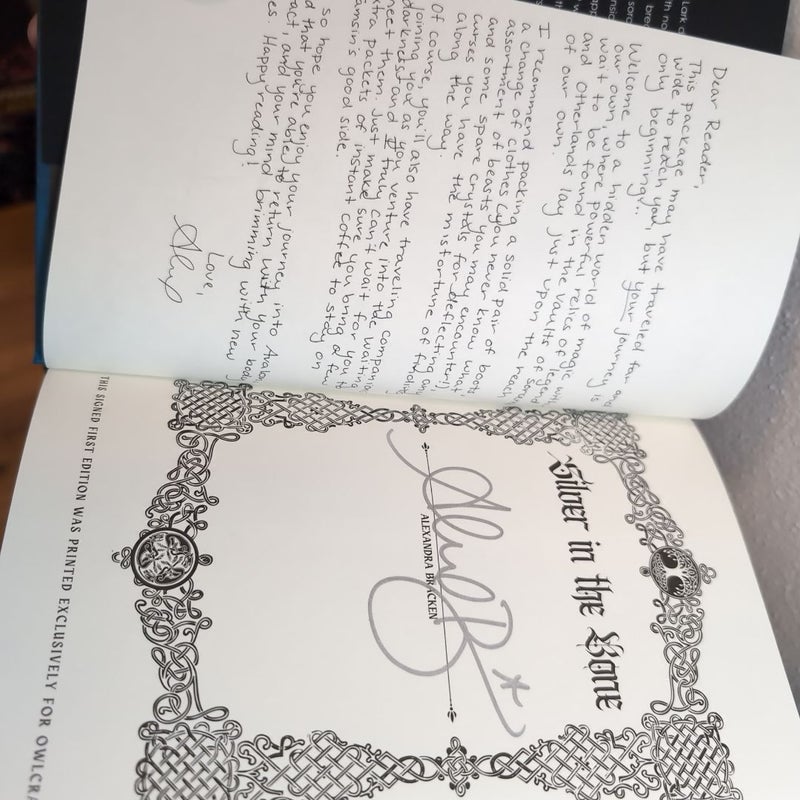 Dear Reader,
This package may have traveled far and
wide to reach you, but your journey is
only beginning...
Welcome to a hidden world of magic
our own, where powerful relics of
wait to be found in the vaults of
and Otherlands lay just upon the reach
of our own.
I recommend packing a solid pair of boots,
a change of clothes (you never know what
assortment of beasts you may encounter),
and some spare crystals for deflecting any
curses you have the misfortune of finding
along the way.
Of course, you'll also have traveling
joining you as you venture into the waiting
darkness and I truly can't wait for you to
meet them. Just make sure you bring a few
packets of instant coffee to stay on
good side.
so hope you enjoy your journey into
that you're able to return with your body
and your mind brimming with new
Happy reading!
Love,
Alex
Silver in the Bone
ALEXANDRA BRACKEN
THIS SIGNED FIRST EDITION WAS PRINTED EXCLUSIVELY FOR OWLCRA